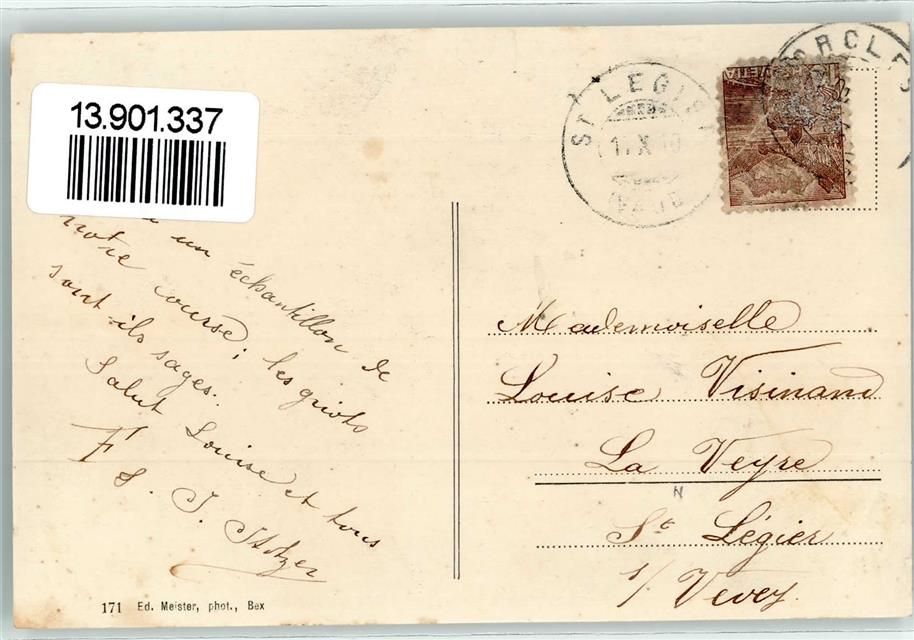 13.901.337
un échantillon de
notre course; les griots
sont ils sages.
Salut Louise et tous
F
S. J. Stotzer
171 Ed. Meister, phot., Bex
ST LEGIER
Mademoiselle
Louise Visinand
La Veyre
N
St Légier
s/ Vevey.